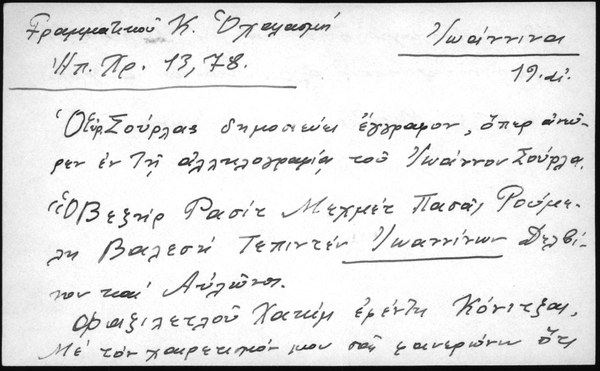 Γραμματικού Κ. Ὁ χαλασμή
Ἠπ. Χρ. 13, 78.
Ἰωάννινα
19. αἰ.
Ὁ Εὐρ. Σούρλας δημοσιεύει ἔγγραφον, ὅπερ ἀνεῦ-
ρεν ἐν τῇ ἀλληλογραφίᾳ τοῦ Ἰωάννου Σούρλα.
"Ὁ Βεζηρ Ρασίτ Μεχμέτ Πασᾶς Ρούμε-
λη Βαλεσή Τεπιντέν Ἰωαννίνων Δελβί-
νου καί Αὐλῶνος.
Φαζιλετλοῦ Χακίμ ἐφέντη Κόνιτζας,
Μέ τόν χαιρετισμόν μου σᾶς φανερώνω ὅτι